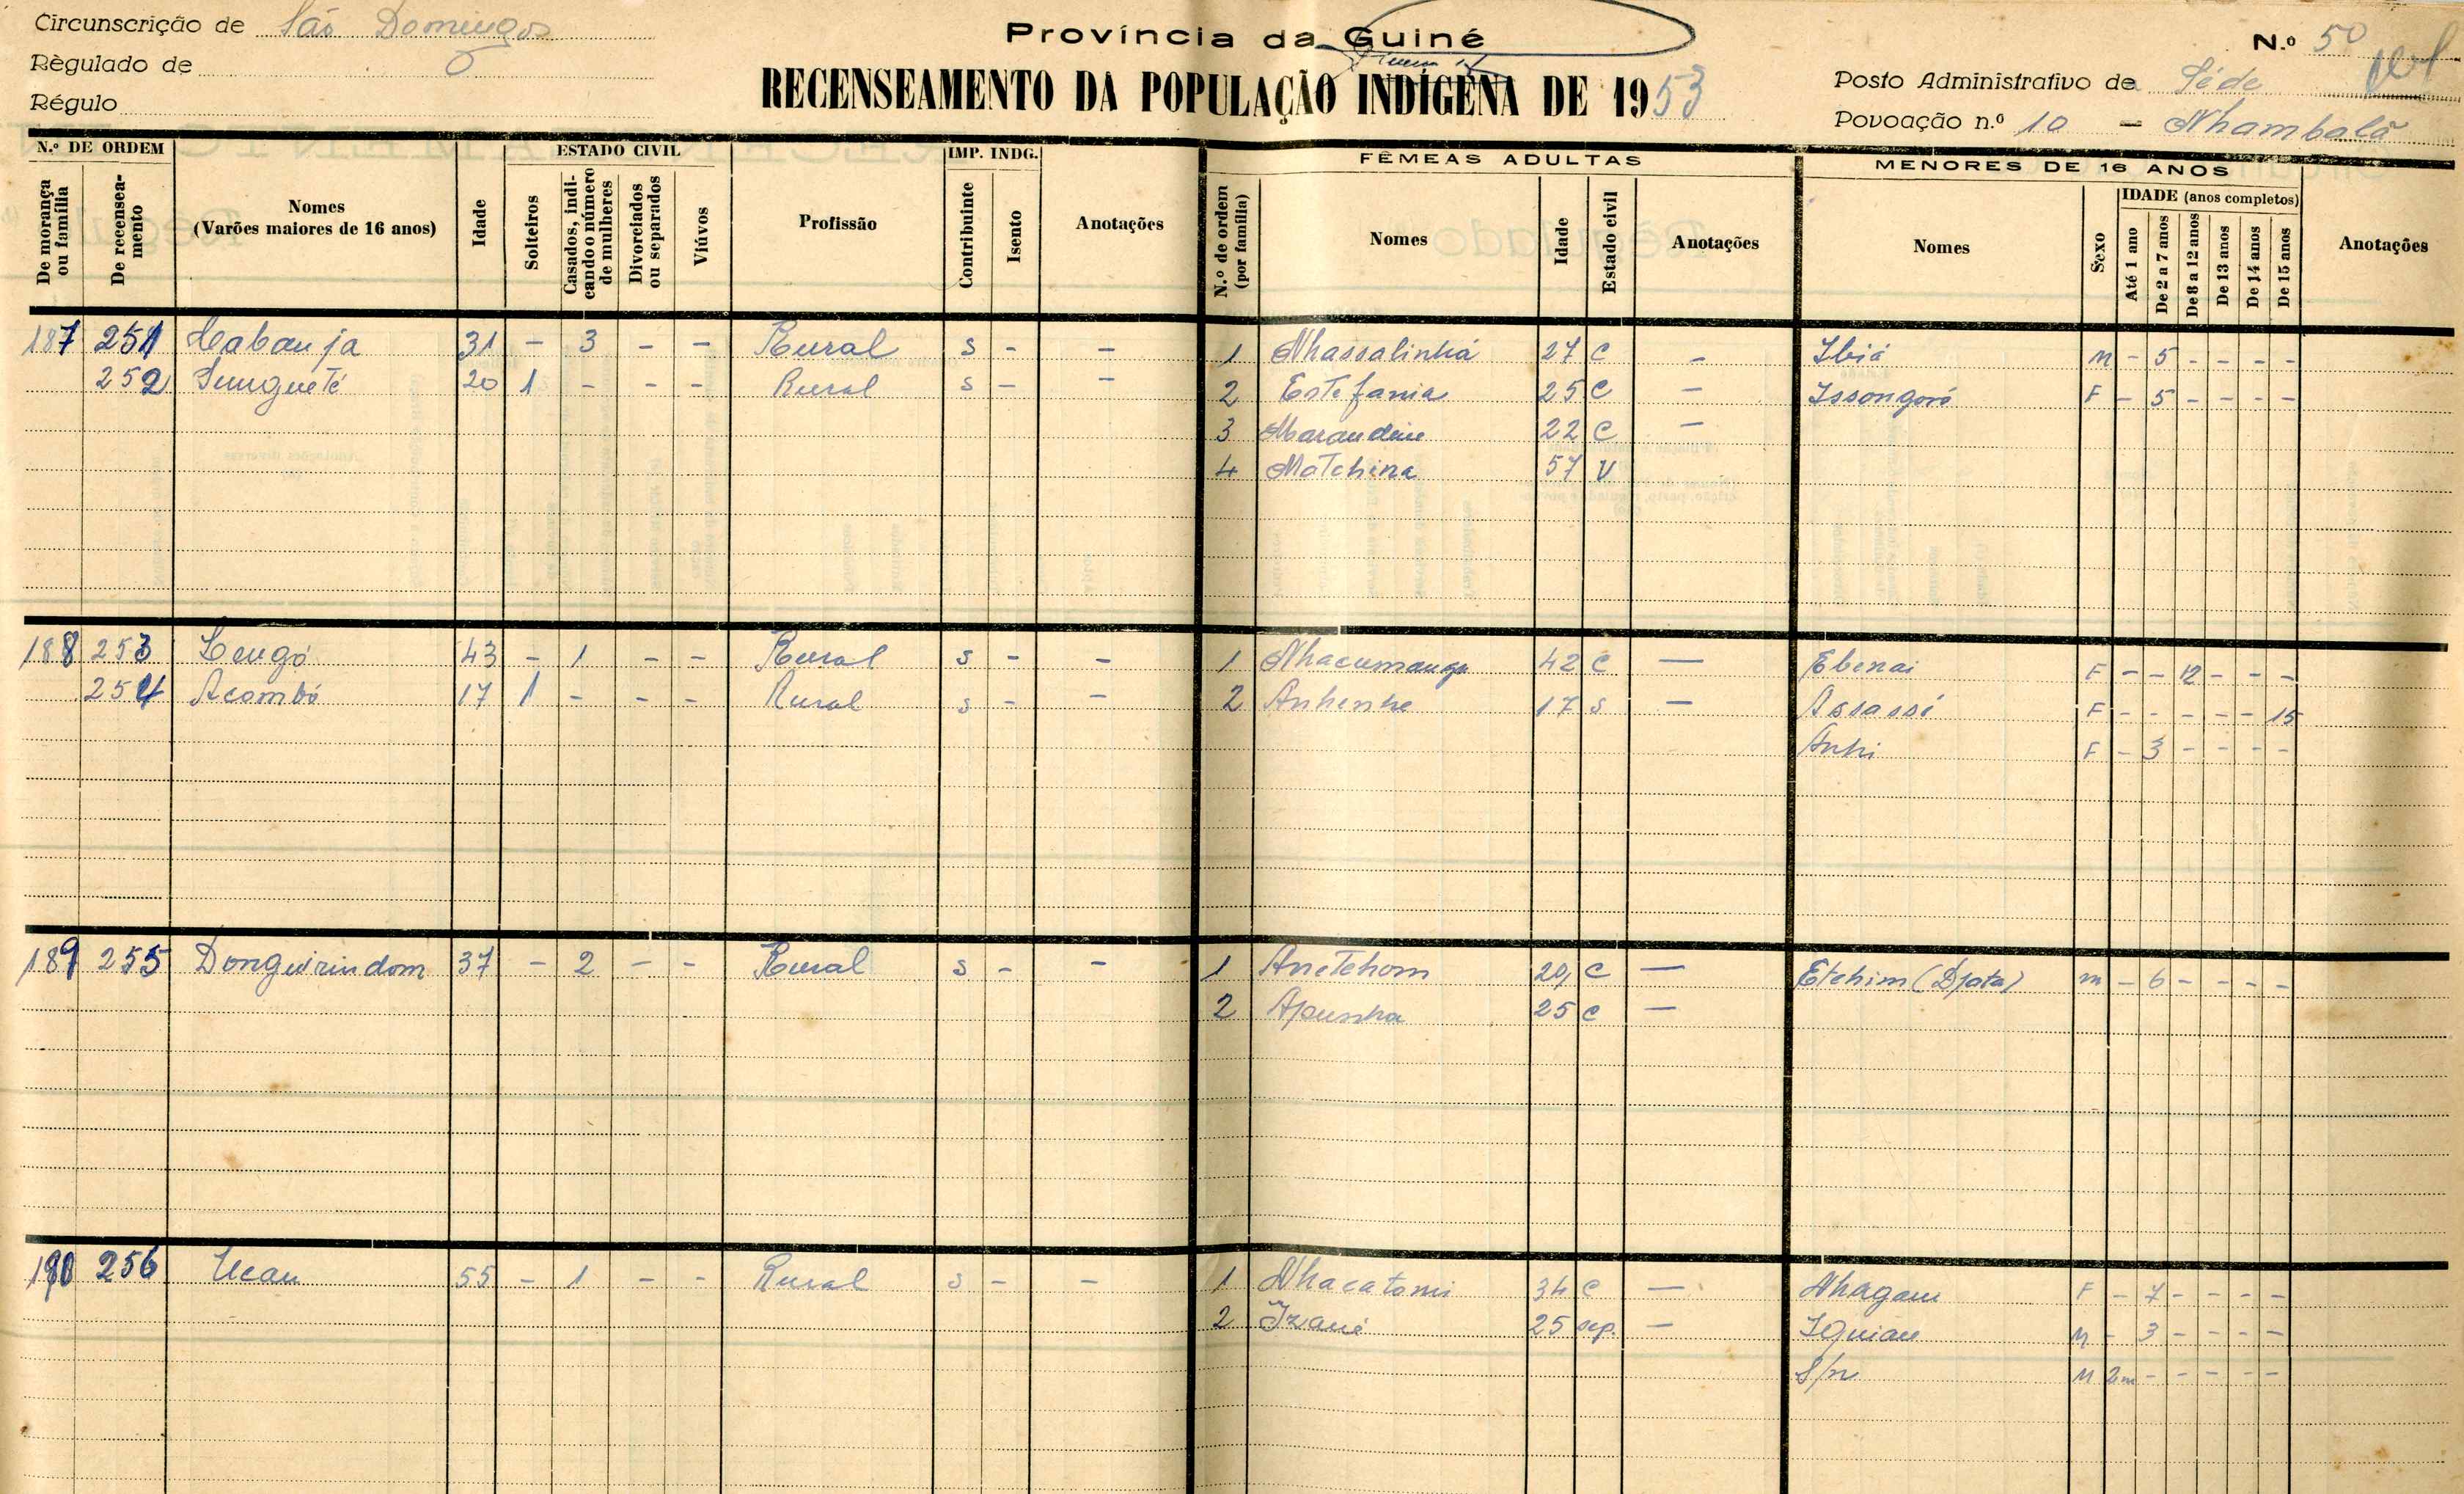 Circunscrição de São Domingos
Règulado de
Régulo
Província da Guiné
RECENSEAMENTO DA POPULAÇÃO INDÍGENA DE 1953
N.º 50
Posto Administrativo de Séde
Povoação n.º 10 — Nhambalã
N.º DE ORDEM
De morança ou família
De recensea-mento
Nomes
(Varões maiores de 16 anos)
Idade
ESTADO CIVIL
Solteiros
Casados, indi-cando o número de mulheres
Divorciados ou separados
Viúvos
Profissão
IMP. INDG.
Contribuinte
Isento
Anotações
FÊMEAS ADULTAS
N.º de ordem (por família)
Nomes
Idade
Estado civil
Anotações
MENORES DE 16 ANOS
Nomes
Sexo
IDADE (anos completos)
Até 1 ano
De 2 a 7 anos
De 8 a 12 anos
De 13 anos
De 14 anos
De 15 anos
Anotações
187 251 Cabanja 31 - 3 - - Rural S - - 1 Nhassalinhá 27 C - Ibiá M - 5 - - - -
252 20 1 - - - Rural S - - 2 Estefania 25 C - Issongoró F - 5 - - - -
3 22 C -
4 Matchina 57 V
188 253 43 - 1 - - Rural S - - 1 42 C — Ebenai F - - 12 - - -
254 Acombó 17 1 - - - Rural S - - 2 Anhenhe 17 S — Assassi F - - - - - 15
Anhi F - 3 - - - -
189 255 Donguirindom 37 - 2 - - Rural S - - 1 Anetchom C — Etchim (Djata) M - 6 - - - -
2 Apunha 25 C —
190 256 Ucau 55 - 1 - - Rural S - - 1 Nhacatomi 34 C — Nhagau F - 7 - - - -
2 Izaué 25 sep. — Iguiau M - 3 - - - -
S/n M 2m - - - - -